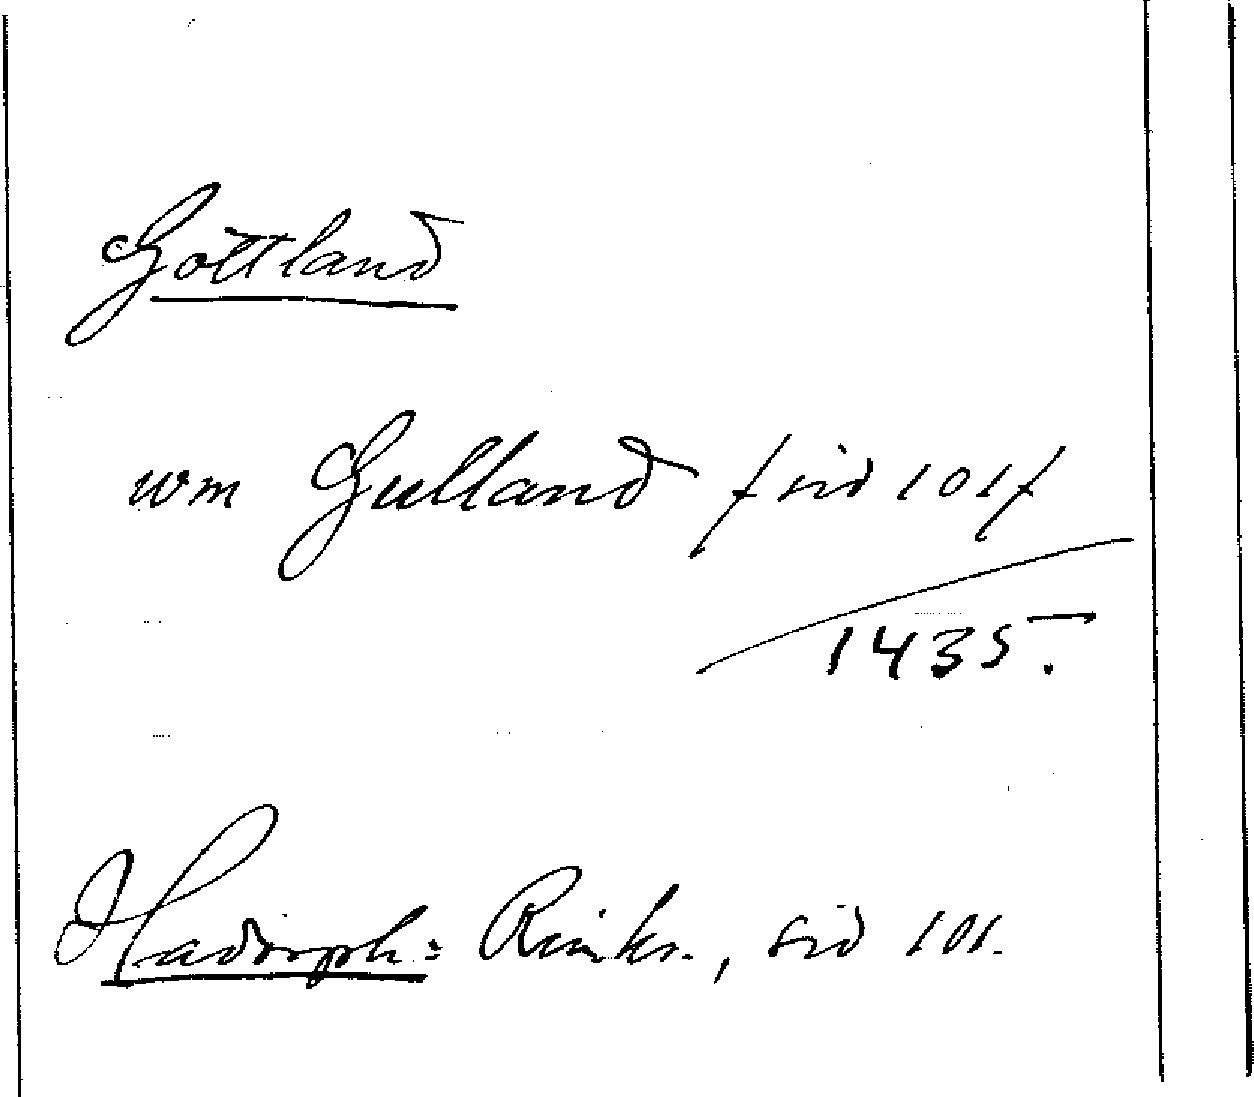 Gottland
wm Gulland /: sid 101 :/
1435.
Hadorph: Rimkr., sid 101.